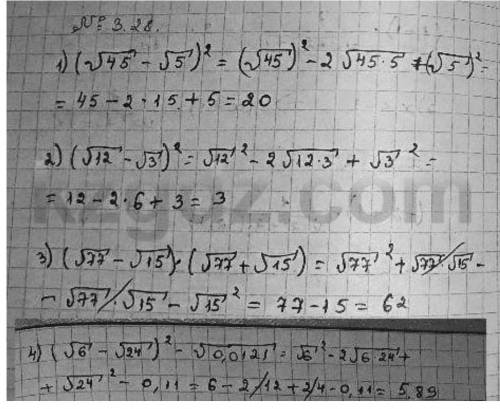 № 3.28.
1) (√45 - √5)² = (√45)² - 2√45·5 + (√5)² =
= 45 - 2·15 + 5 = 20
2) (√12 - √3)² = √12² - 2√12·3 + √3² =
= 12 - 2·6 + 3 = 3
3) (√77 - √15)·(√77 + √15) = √77² + √77·√15 -
- √77·√15 - √15² = 77 - 15 = 62
4) (√6 - √24)² - √0,0121 = √6² - 2√6·24 +
+ √24² - 0,11 = 6 - 2·12 + 24 - 0,11 = 5,89